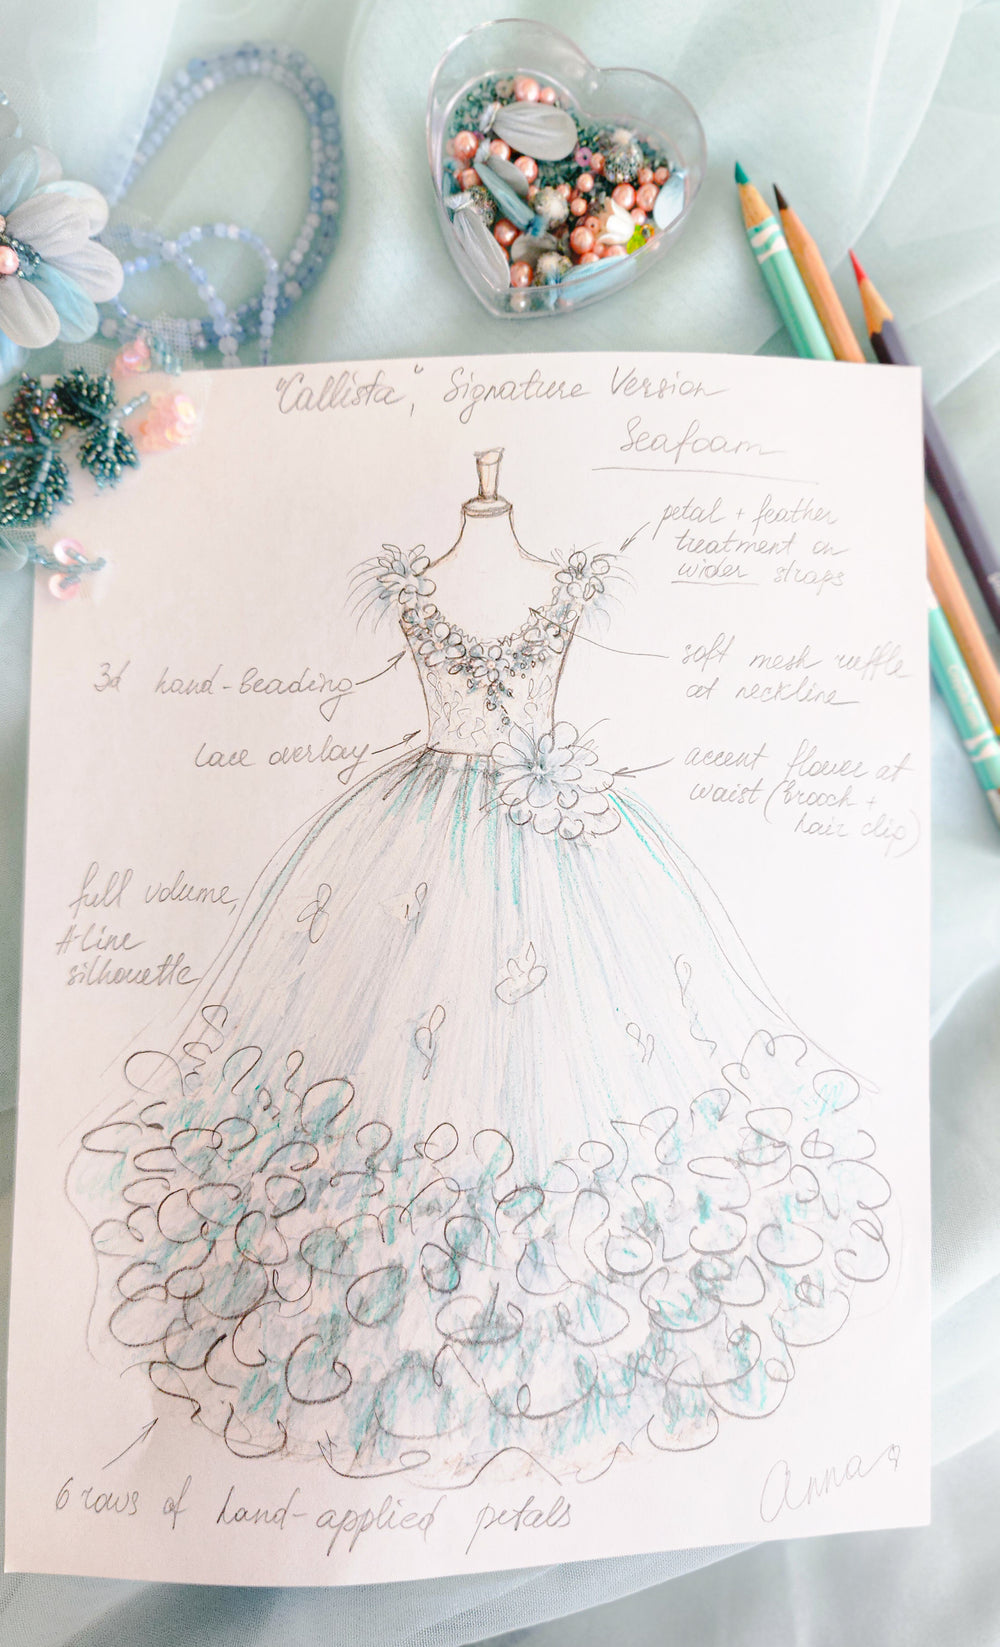 "Callista", Signature Version
Seafoam
petal + feather
treatment on
wider straps
soft mesh ruffle
at neckline
3d hand-beading
lace overlay
accent flower at
waist (brooch +
hair clip)
full volume,
A-line
silhouette
6 rows of hand-applied petals
Anna